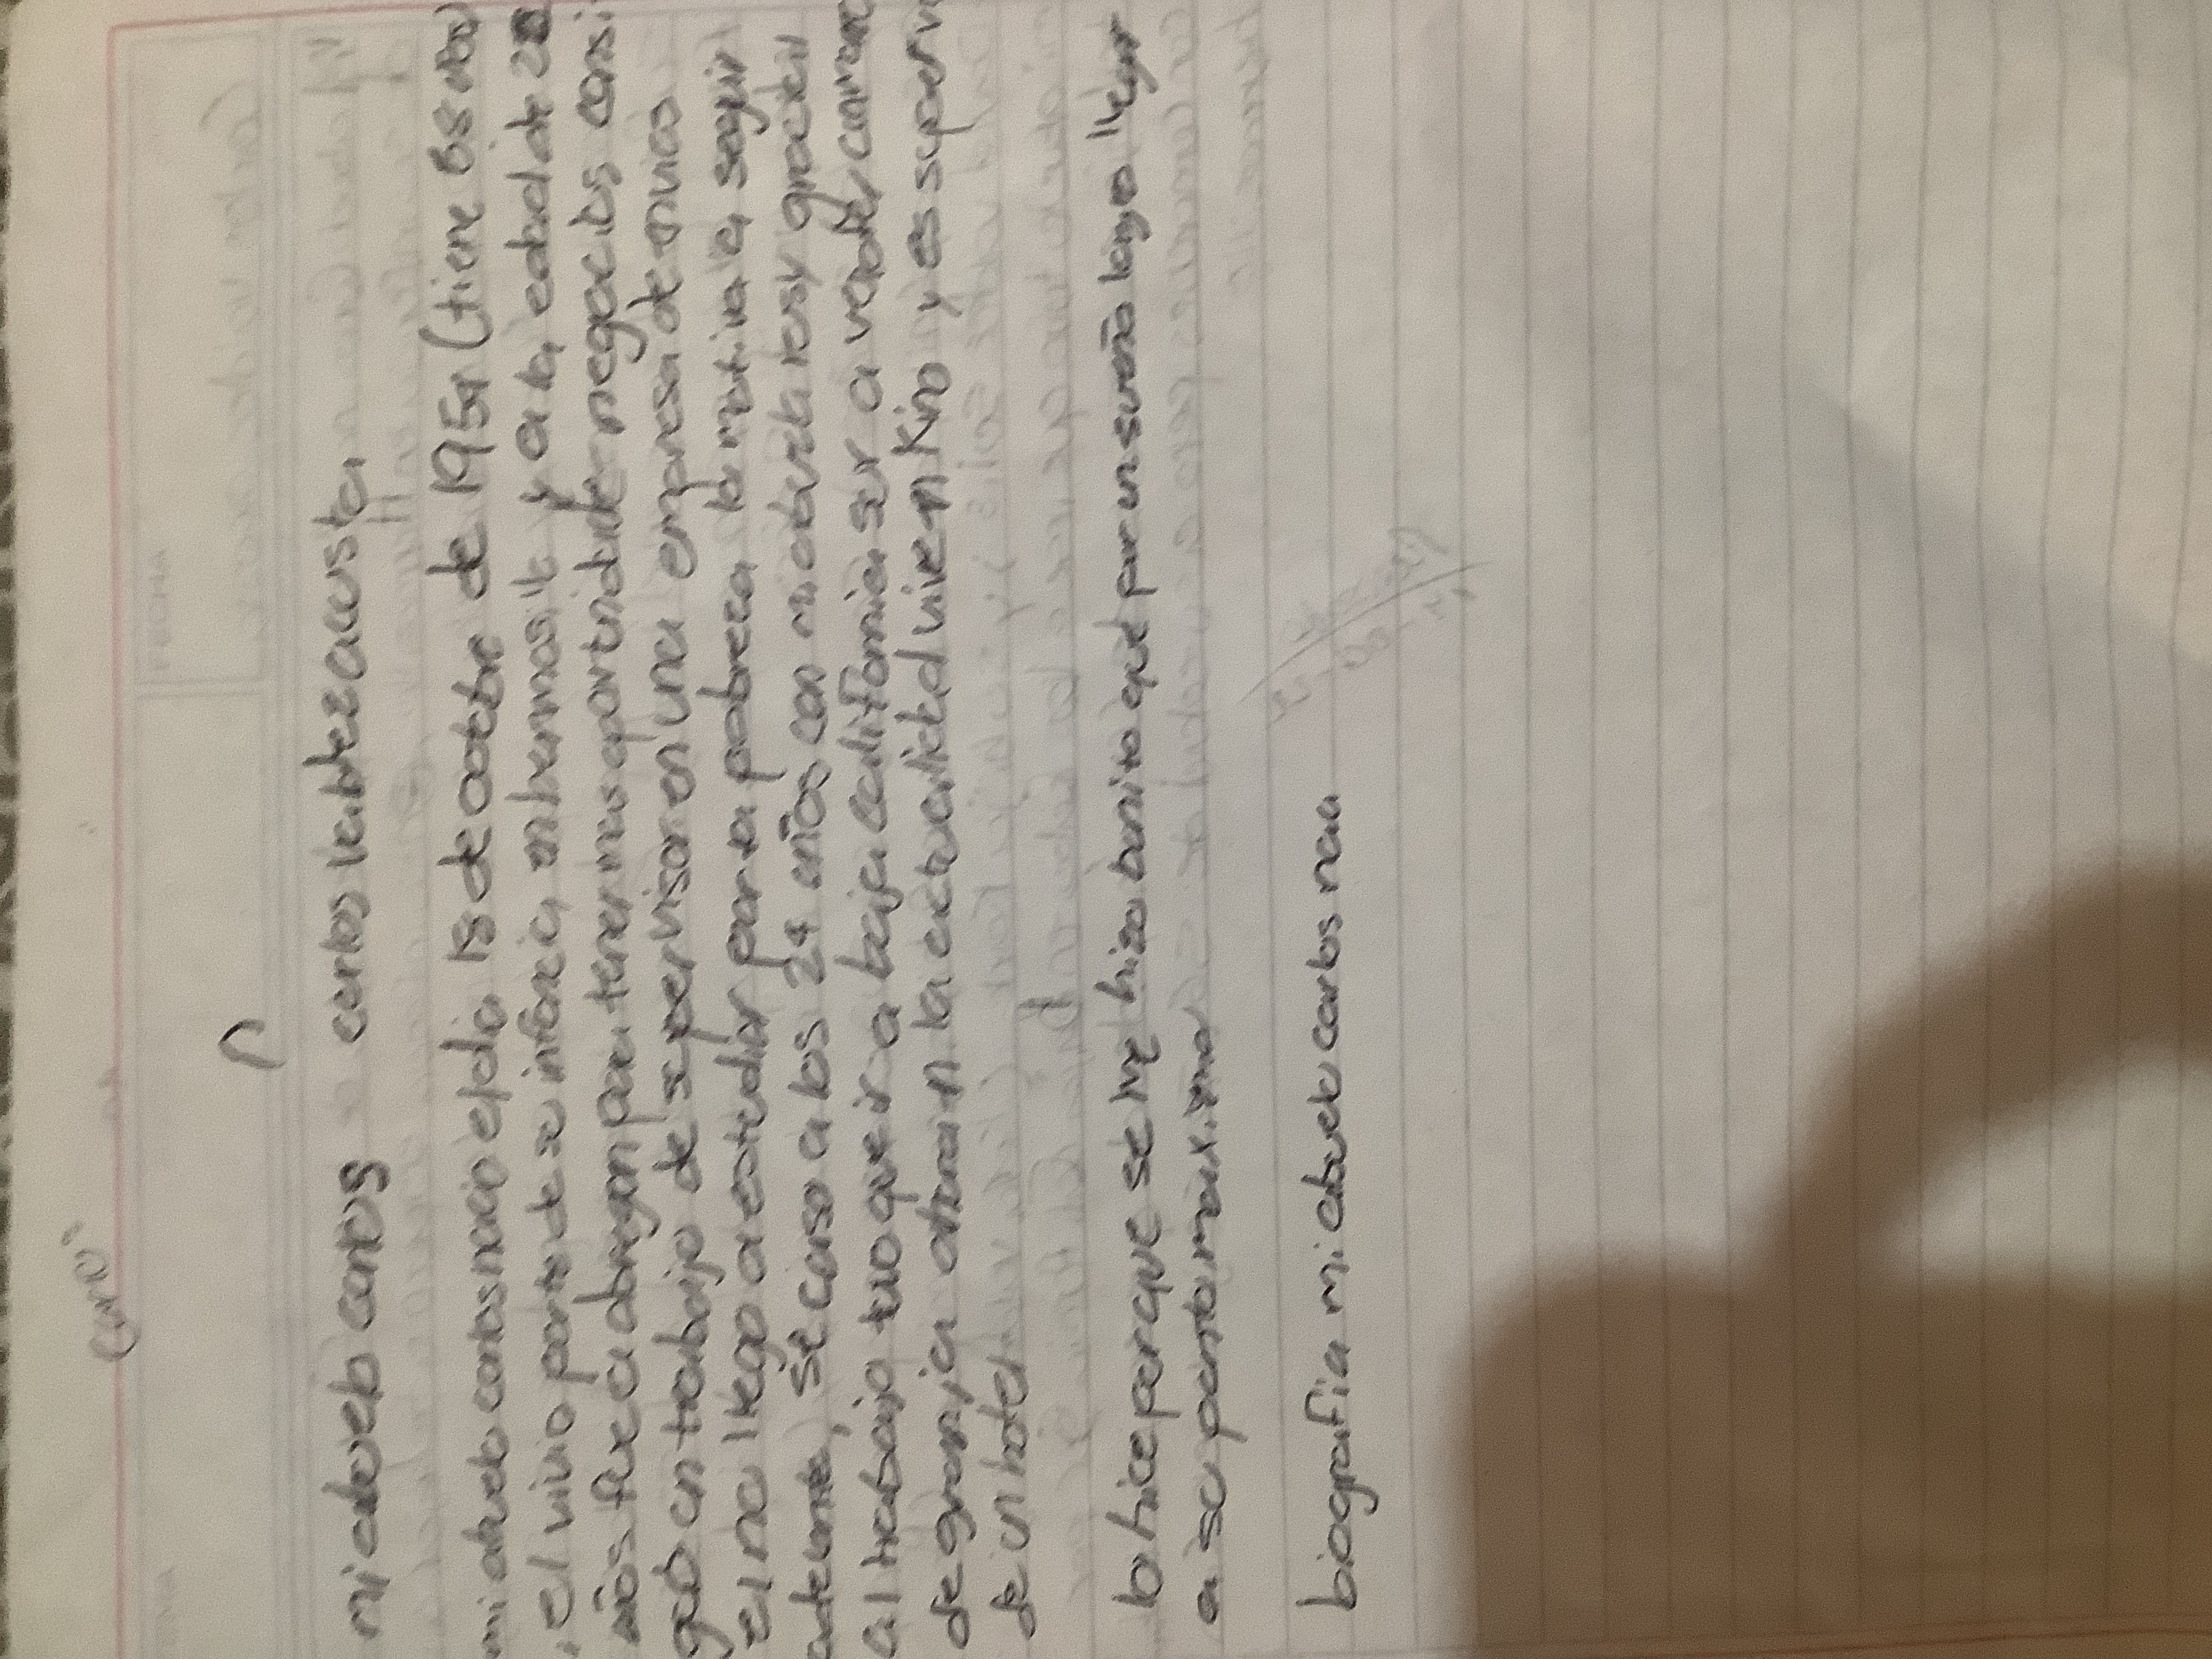 "carlo"
mi abuelo carlos carlos
mi abuelo carlos nacio el dia 18 de octubre de 1954 (tiene 68 años)
, el vivio parte de su infancia en hermosillo y a la edad de 20
años fue a obregon para tener mas oportunidade negocios consi
guio un trabajo de supervisor en una empresa de envios
el no llego a estudiar por la pobreza lo motiva a seguir
adelante, se caso a los 24 años con mi abuela rosy gracias
al trabajo tuvo que ir a baja california sur a vender camaron
de granja ahora en la actualidad vive en Kino y es superv
de un hotel
lo hice porque se me hizo bonito que por un sueño largo llegar
a su punto maximo
biografia mi abuelo carlos naci